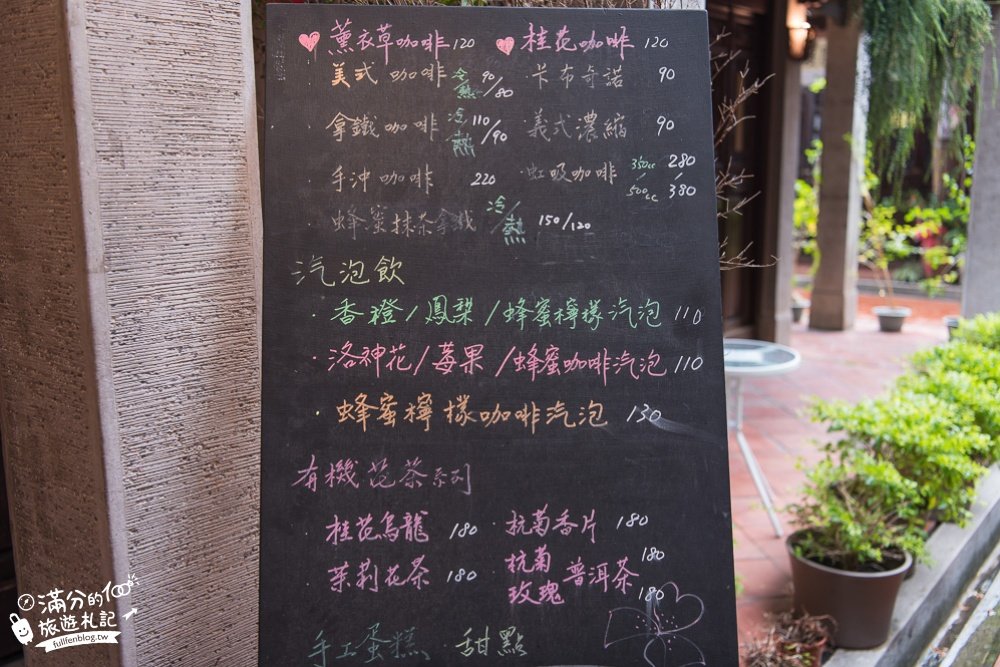 薰衣草咖啡 120 桂花咖啡 120
美式咖啡 冷/熱 90/80 ·卡布奇諾 90
·拿鐵咖啡 冷/熱 110/90 ·義式濃縮 90
·手沖咖啡 220 ·虹吸咖啡 350cc/500cc 280/380
·蜂蜜抹茶拿鐵 冷/熱 150/120
汽泡飲
·香橙/鳳梨/蜂蜜檸檬汽泡 110
·洛神花/莓果/蜂蜜咖啡汽泡 110
·蜂蜜檸檬咖啡汽泡 130
有機花茶系列
·桂花烏龍 180 ·杭菊香片 180
·茉莉花茶 180 ·杭菊 玫瑰 普洱茶 180 180
手工蛋糕·甜點
滿分的
旅遊札記
fullfenblog.tw